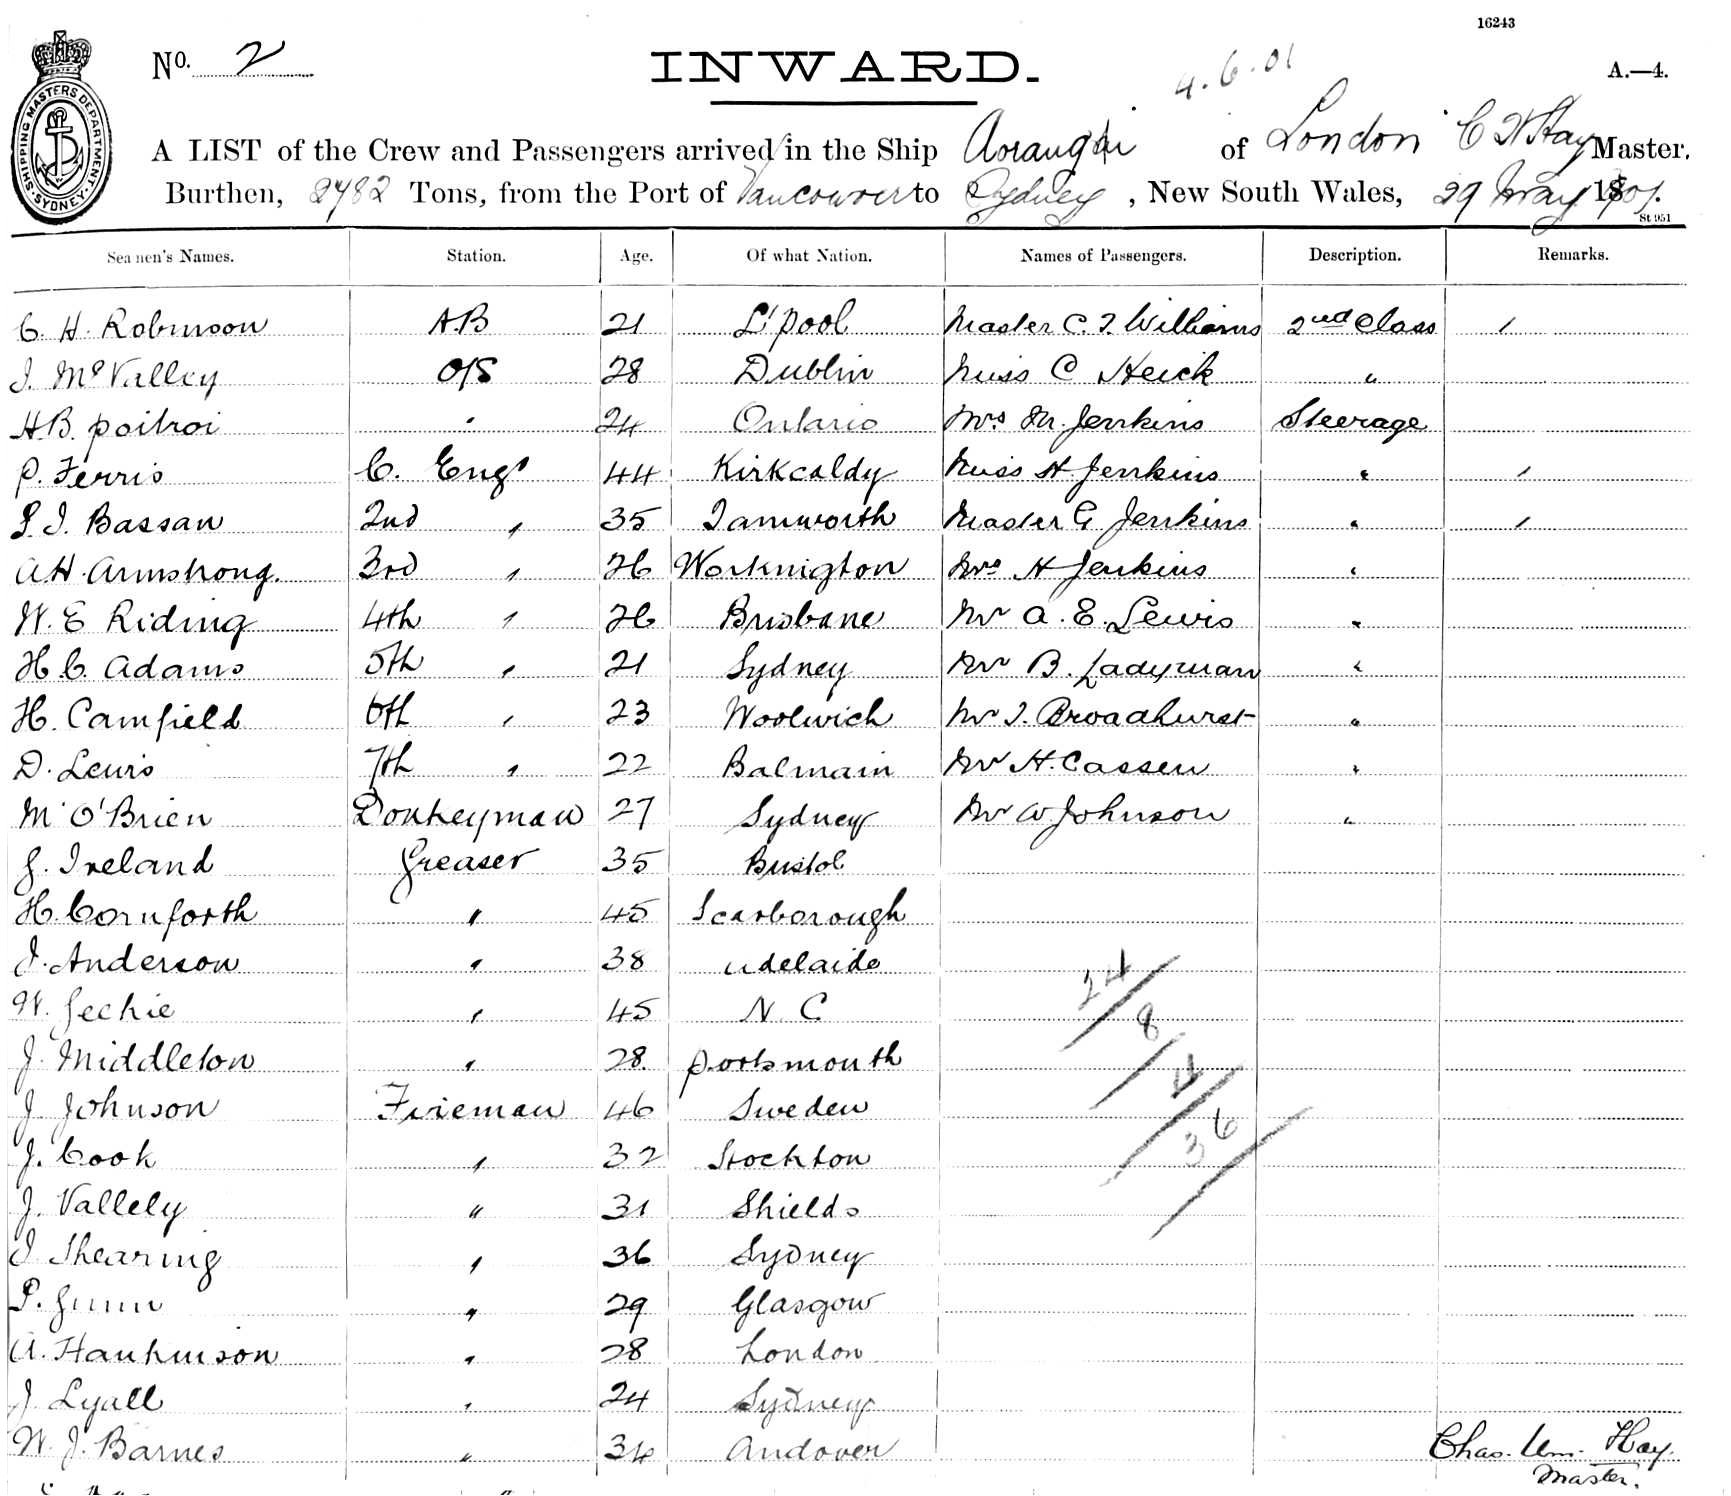 16243
No. 2
INWARD.
4.6.01
A.—4.
SHIPPING MASTERS DEPARTMENT. SYDNEY.
A LIST of the Crew and Passengers arrived in the Ship Aorangi of London C W Hay Master.
Burthen, 2782 Tons, from the Port of Vancouver to Sydney, New South Wales, 29 May 1901.
St 951
Seamen's Names. Station. Age. Of what Nation. Names of Passengers. Description. Remarks.
C. H. Robinson A.B 21 L'pool Master C. T. Williams 2nd Class 1
J. McValley O/S 28 Dublin Miss C Heick "
H.B. Poitroi " 24 Ontario Mrs M. Jenkins Steerage
P. Ferris C. Engr 44 Kirkcaldy Miss H. Jenkins " 1
S. J. Bassan 2nd " 35 Tamworth Master G Jenkins " 1
A.H. Armstrong. 3rd " 26 Workington Mrs H Jenkins "
W. E Riding 4th " 26 Brisbane Mr A. E. Lewis "
H. C. Adams 5th " 21 Sydney Mr B. Ladyman "
H. Camfield 6th " 23 Woolwich Mr J. Broadhurst "
D. Lewis 7th " 22 Balmain Mr H. Cassen "
M O'Brien Donkeyman 27 Sydney Mr W Johnson "
G. Ireland Greaser 35 Bristol
H. Cornforth " 45 Scarborough
J. Anderson " 38 Adelaide
W. Geckie " 45 N. C
J. Middleton " 28 Portsmouth
J Johnson Fireman 46 Sweden
J. Cook " 32 Stockton
J. Vallely " 31 Shields
J Shearing " 36 Sydney
P. Gunn " 29 Glasgow
A. Hankinson " 28 London
J Lyall " 24 Sydney
W. J. Barnes " 34 Andover
24
8
4
36
Chas. Wm. Hay.
Master.